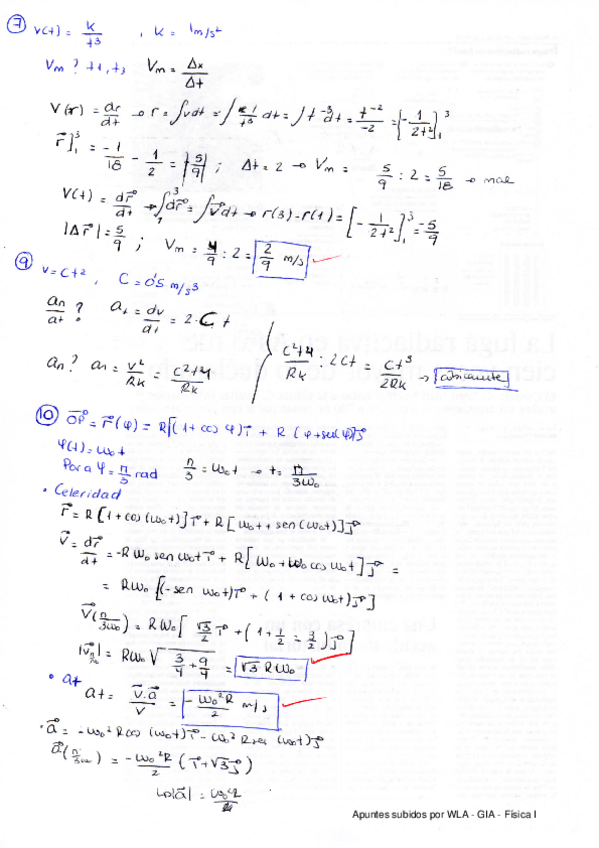 7 v(t) = k/t³ , k = 1 m/s²
Vm? t1, t3 Vm = Δx/Δt
V(r) = dr/dt → r = ∫vdt = ∫ 1/t³ dt = ∫t⁻³dt = t⁻²/-2 = [-1/2t²]₁³
r⃗]₁³ = -1/18 - 1/2 = |5/9| ; Δt = 2 → Vm = 5/9 : 2 = 5/18 → mal
V(t) = dr⃗/dt → ∫₁³dr⃗ = ∫v⃗dt → r(3) - r(1) = [-1/2t²]₁³ = -5/9
|Δr⃗| = 5/9 ; Vm = 4/9 : 2 = 2/9 m/s
9 v = Ct² , C = 0'5 m/s³
an/at ? at = dv/dt = 2·C t
an? an = v²/Rk = C²t4/Rk
C²t4/Rk · 2Ct = Ct³/2Rk →
10 OP⃗ = r⃗(φ) = R[(1 + cos φ)i⃗ + R (φ + sen φ)j⃗
φ(t) = ω₀t
Para φ = π/3 rad π/3 = ω₀t → t = π/3ω₀
• Celeridad
r⃗ = R[1 + cos(ω₀t)]i⃗ + R[ω₀t + sen(ω₀t)]j⃗
v⃗ = dr⃗/dt = -Rω₀ sen ω₀t i⃗ + R[ω₀ + ω₀ cos ω₀t]j⃗ =
= Rω₀[(-sen ω₀t)i⃗ + (1 + cos ω₀t)j⃗]
V⃗(π/3ω₀) = Rω₀[√3/2 i⃗ + (1 + 1/2 = 3/2)j⃗]
|v⃗| = Rω₀ √(3/4 + 9/4) = √3 Rω₀
• at
at = v⃗·a⃗/v = -ω₀²R/2 m/s
• a⃗ = -ω₀²R cos(ω₀t)i⃗ - ω₀²R sen(ω₀t)j⃗
a⃗(π/3ω₀) = -ω₀²R/2 (i⃗ + √3j⃗)
Apuntes subidos por WLA - GIA - Física I